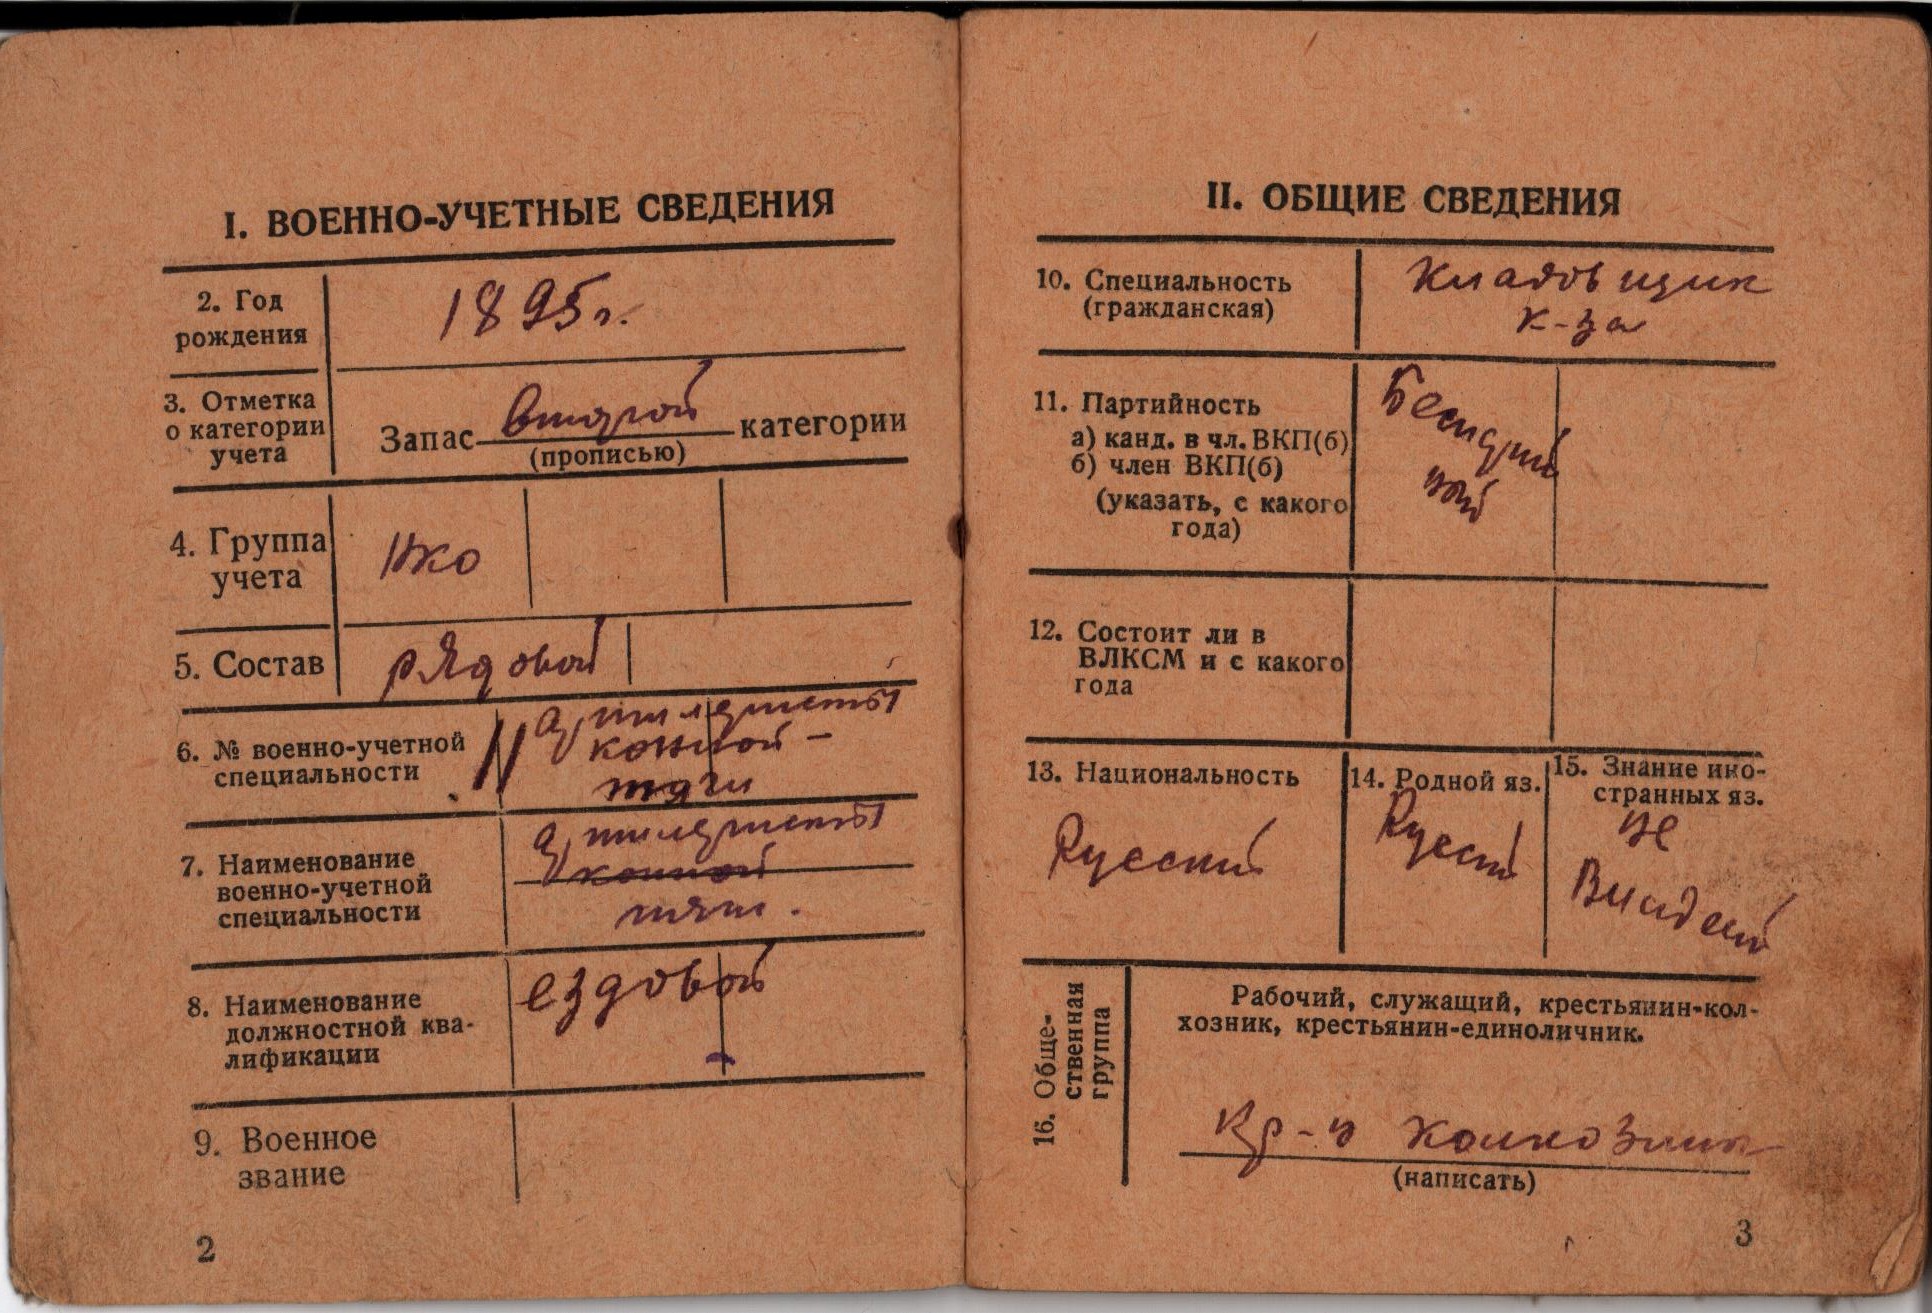 I. ВОЕННО-УЧЕТНЫЕ СВЕДЕНИЯ
2. Год
рождения
1895 г.
3. Отметка
о категории
учета
Запас второй категории
(прописью)
4. Группа
учета
НКО
5. Состав
рядовой
6. № военно-учетной
специальности
11
артиллеристы
конной -
тяги
7. Наименование
военно-учетной
специальности
артиллеристы
конной
тяги.
8. Наименование
должностной ква-
лификации
ездовой
9. Военное
звание
2
II. ОБЩИЕ СВЕДЕНИЯ
10. Специальность
(гражданская)
Кладовщик
к-за
11. Партийность
а) канд. в чл. ВКП(б)
б) член ВКП(б)
(указать, с какого
года)
Беспартий
ный
12. Состоит ли в
ВЛКСМ и с какого
года
13. Национальность
Русский
14. Родной яз.
Русский
15. Знание ино-
странных яз.
не
Владеет
16. Обще-
ственная
группа
Рабочий, служащий, крестьянин-кол-
хозник, крестьянин-единоличник.
Кр-н колхозник
(написать)
3